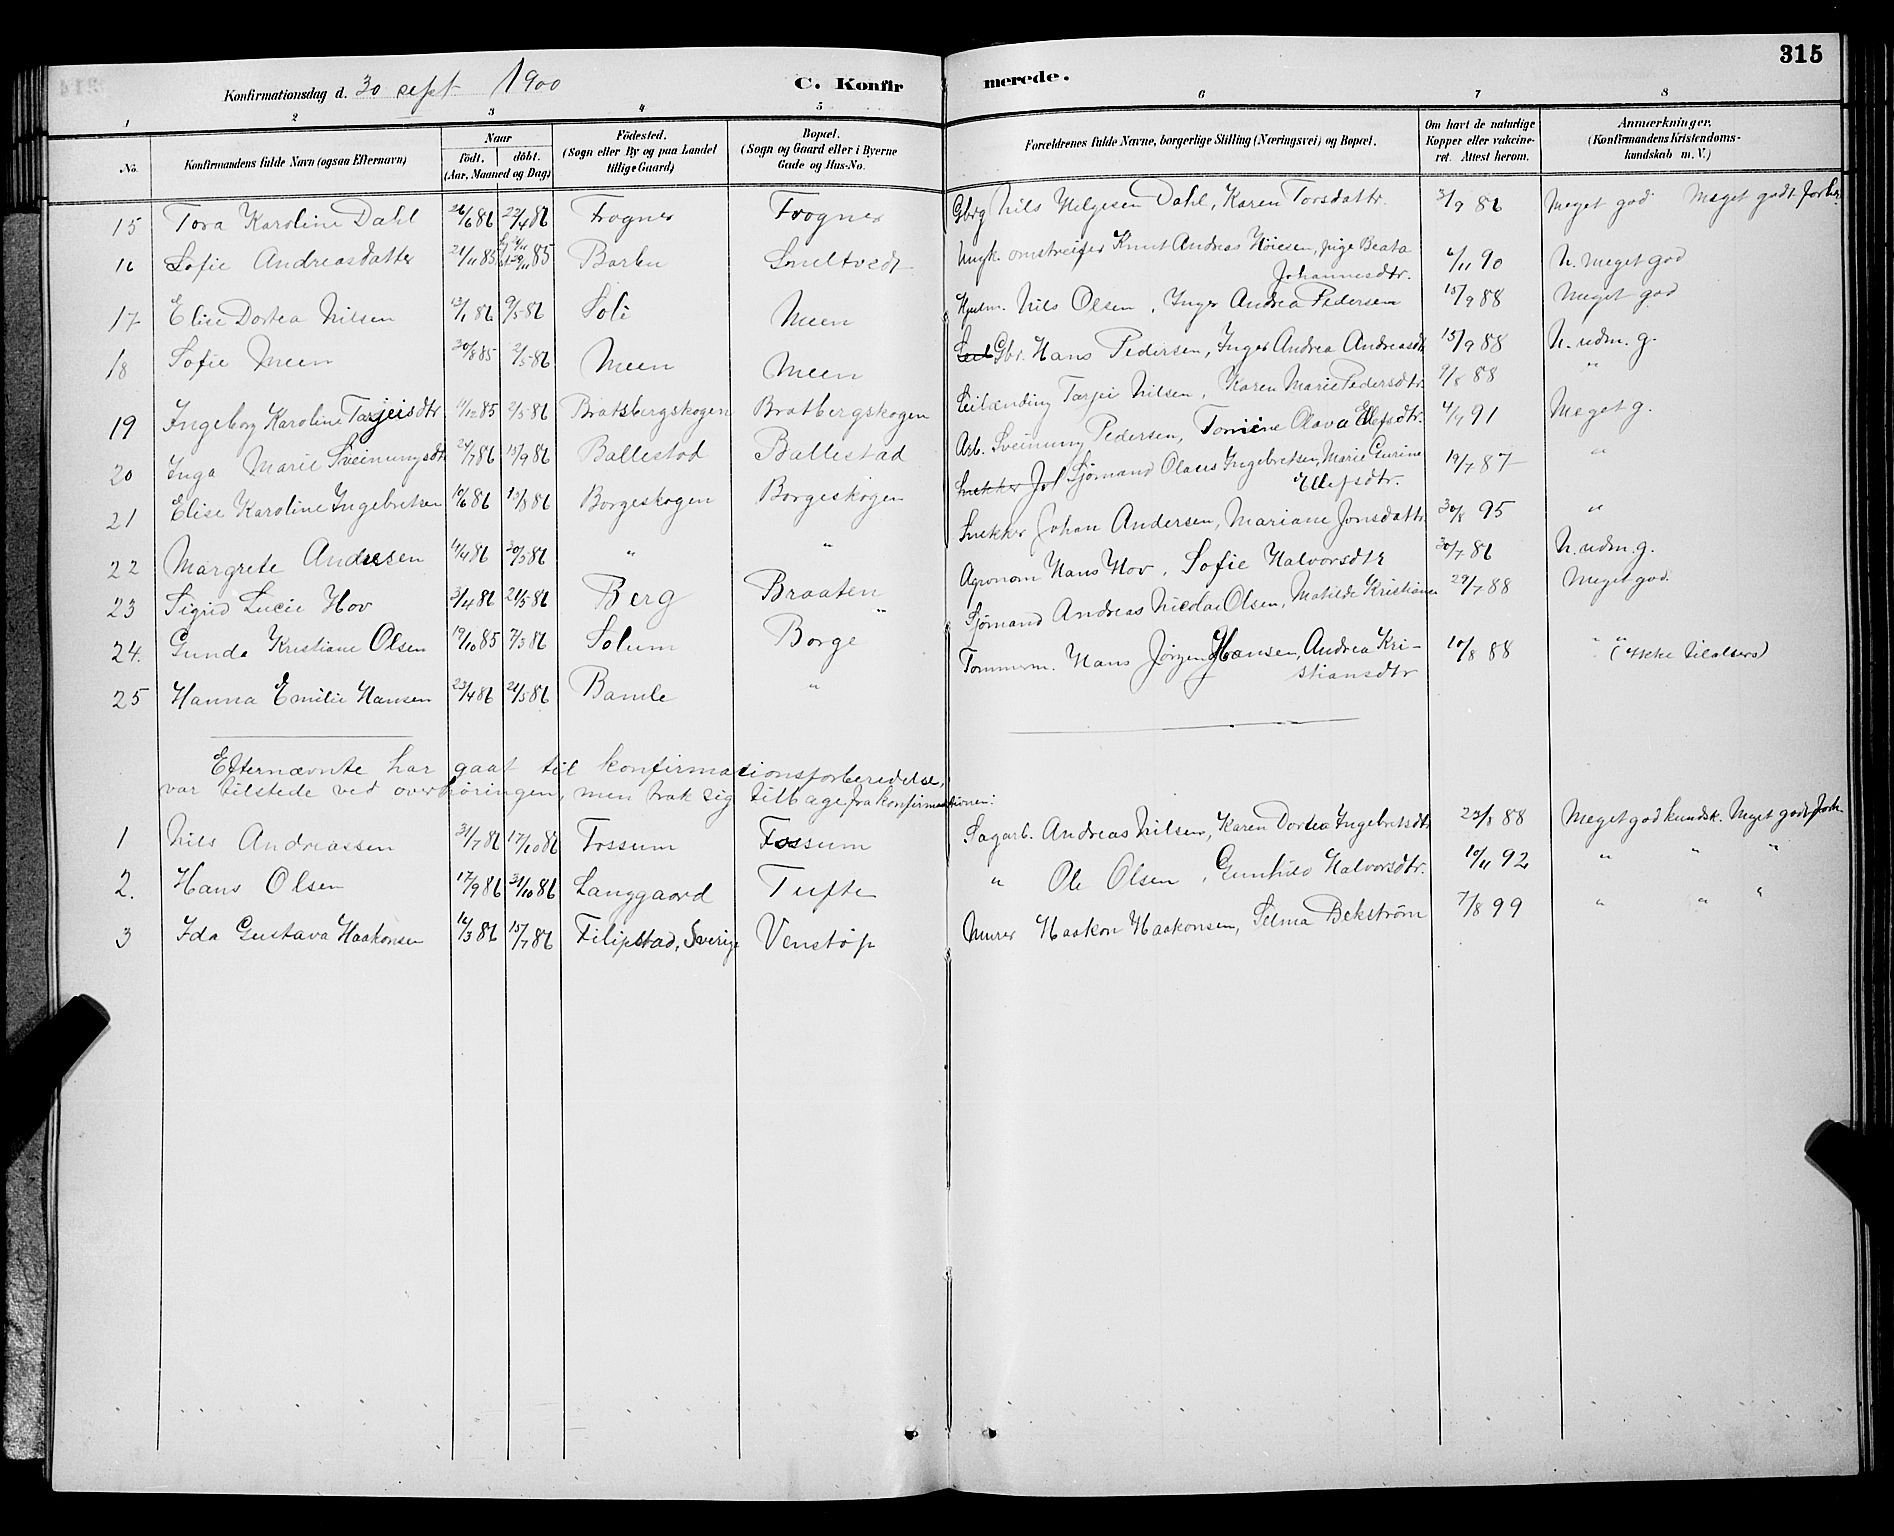 315
Konfirmationsdag d. 30 sept 1900 C. Konfirmerede.
1 2 3 4 5 6 7 8
No. Konfirmandens fulde Navn (ogsaa Efternavn) Naar født. døbt. (Aar, Maaned og Dag) Fødested. (Sogn eller By og paa Landet tillige Gaard) Bopæl. (Sogn og Gaard eller i Byerne Gade og Hus-No. Forældrenes fulde Navne, borgerlige Stilling (Næringsvei) og Bopæl. Om havt de naturlige Kopper eller vakcineret. Attest herom. Anmærkninger. (Konfirmandens Kristendomskundskab m. V.)
15 Tora Karoline Dahl 26/6 86 22/4 86 Frogner Frogner Gbrg Nils Helgesen Dahl, Karen Torsdattr. 3/9 86 Meget god Meget godt Forh.
16 Sofie Andreasdatter 21/11 85 85 Barbu Smeltvedt Ungk. omstreifer Knut Andreas Høiesen, pige Beata Johannesdtr. 6/11 90 N. meget god
17 Elise Dortea Nilsen 13/1 86 9/5 86 Soli Meen Nils Olsen, Inger Andrea Pedersen 15/9 88 Meget god
18 Sofie Meen 30/8 85 2/5 86 Meen Meen Gbr. Hans Pedersen, Inger Andrea Andreasdt 15/9 88 N. udm. g.
19 Ingeborg Karoline Tarjeisdtr 11/12 85 2/5 86 Bratsbergskogen Bratbergskogen Leilænding Tarjei Nilsen, Karen Marie Pedersdtr 9/8 88 "
20 Inga Marie Sveinungsdt 24/7 86 19/9 86 Ballestad Ballestad Arb. Sveinung Pedersen, Tomine Olava Ellefsdtr. 4/7 91 Meget g.
21 Elise Karoline Ingebretsen 10/6 86 15/8 86 Borgeskogen Borgeskogen Snekker Joh Sjømand Olaus Ingebretsen, Marie Gurine Ellefsdtr. 19/7 87 "
22 Margrete Andersen 11/4 86 30/5 86 " " Snekker Johan Andersen, Mariane Jonsdattr 30/8 95 "
23 Sigrid Lucie Hov 3/4 86 21/5 86 Berg Braaten Agronom Hans Hov, Sofie Halvorsdtr 30/7 86 N. udm. g.
24. Gunda Kristiane Olsen 19/10 85 7/3 86 Solum Borge " Sjømand Andreas Nicolai Olsen, Matilde Kristiansen 29/7 88 Meget god.
25 Hanna Emilie Hansen 23/4 86 21/5 86 Bamle " Tømmerm. Hans Jørgen Hansen, Andrea Kristiansdtr 10/8 88 " " (Ikke tilalters)
Efternævnte har gaat til konfirmationsforberedelse,
var tilstede ved overhøringen, men trak sig tilbage fra konfirmationen:
1 Nils Andreassen 31/7 86 17/10 86 Fossum Fossum Sagarb. Andreas Nilsen, Karen Dortea Ingebretsdtr 22/8 88 Meget god kundsk. Meget godt Forh.
2. Hans Olsen 17/9 86 31/10 86 Langgaard Tufte " Ole Olsen, Gunhild Halvorsdtr. 10/11 92 " " "
3 Ida Gustava Haakonsen 16/3 86 15/7 86 Filipstad, Sverige Venstøp Murer Haakon Haakonsen, Selma Bekstrøm 7/8 99 " " "